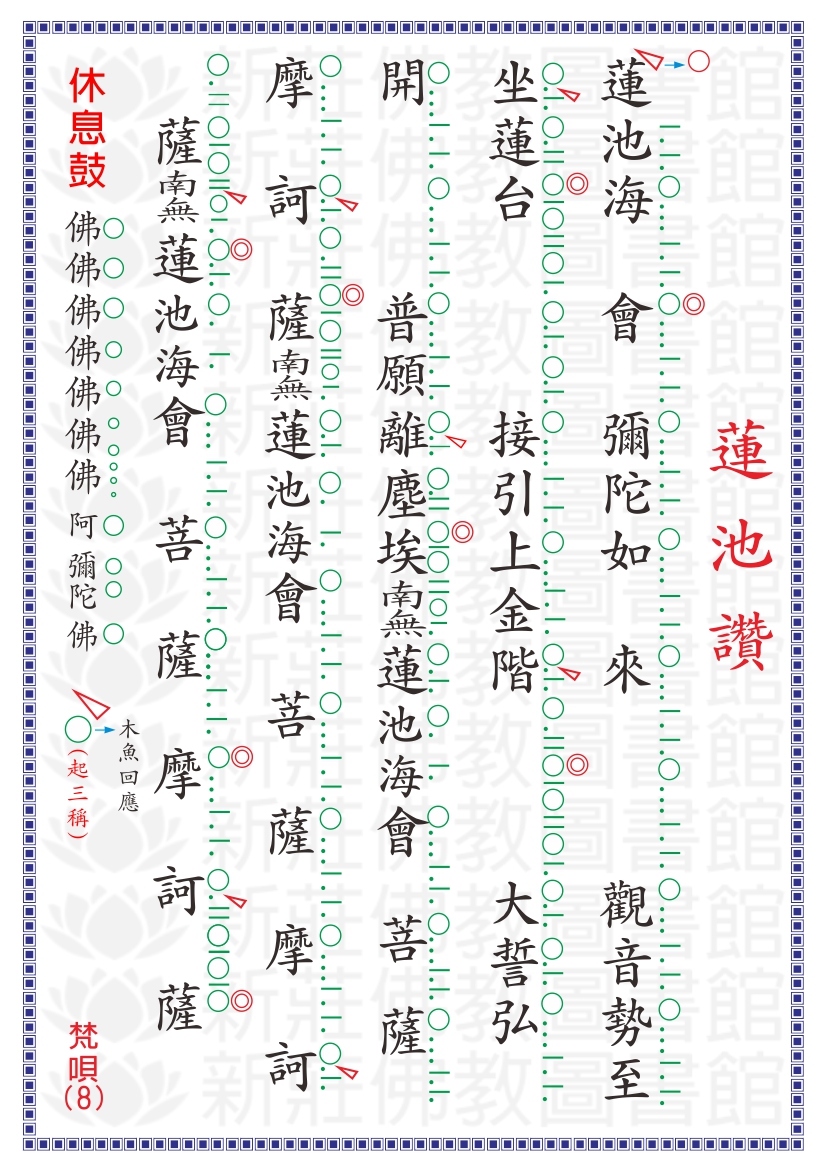 蓮池讚
蓮池海會彌陀如來觀音勢至
坐蓮台接引上金階大誓弘
開普願離塵埃南無蓮池海會菩薩
摩訶薩南無蓮池海會菩薩摩訶
薩南無蓮池海會菩薩摩訶薩
木魚回應
休息鼓
佛佛佛佛佛佛佛阿彌陀佛
(起三稱)
梵唄(8)
新莊佛教圖書館